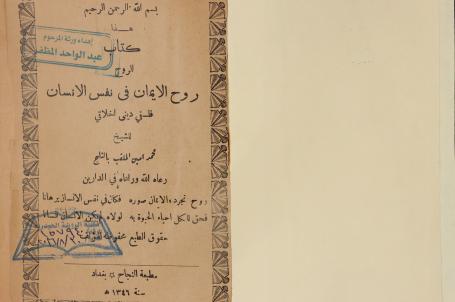 بسم الله الرحمن الرحيم
هذا
كتاب
الروح
روح الايمان في نفس الانسان
فلسفي ديني اخلاقي
للشيخ
محمد امين الملقب بالثلج
رعاه الله ورعاه في الدارين
روح تجرد والايمان صوره فكان في نفس الانسان برهانا
فحق لا كمل احياء الحيوة به لولاه لم يكن الانسان
حقوق الطبع محفوظة للمؤلف
مطبعة النجاح بغداد
سنة ١٣٤٦ هـ
إهداء ورثة المرحوم
عبد الواحد المظفر